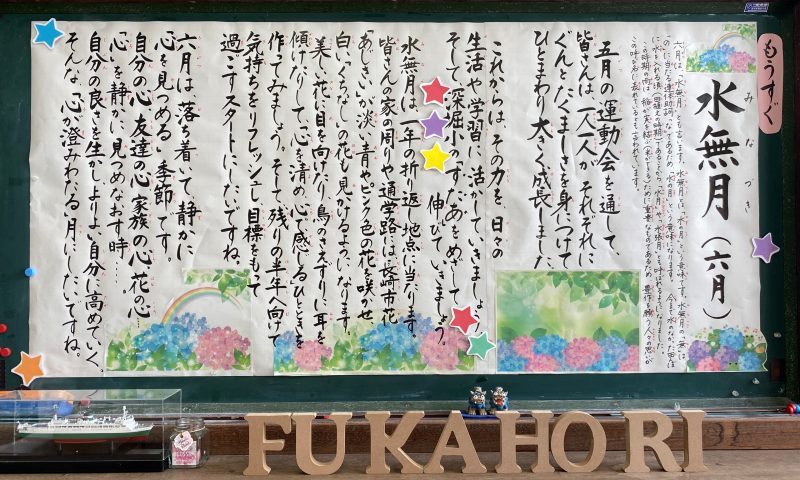 もうすぐ
水無月（六月）
み な づき
六月は、「水無月」とも言います。水無月とは、「水の月」という意味です。水無月の「無」は、
この時期の雨は、稲が実を結ぶ（米ができる）ために重要なものであるため、豊作を願う人々の思いが
この呼び名に表れているとも言われています。
五月の運動会を通して、
皆さんは、一人一人が、それぞれに
ぐんとたくましさを身につけて
ひとまわり大きく成長しました。
これからは、その力を、日々の
生活や学習に活かしていきましょう。
そして、深堀小の
伸びていきましょう。
水無月は、一年の折り返し地点に当たります。
皆さんの家の周りや通学路には、長崎市花
「あじさい」が淡い青やピンク色の花を咲かせ、
白い「くちなし」の花も見かけるようになります。
美しい花に目を向けたり、鳥のさえずりに耳を
傾けたりして、「心を清め、心で感じる」ひとときを
作ってみましょう。そして、残りの半年へ向けて
気持ちをリフレッシュし、目標をもって
過ごすスタートにしたいですね。
六月は、落ち着いて、静かに
「心を見つめる」季節です。
自分の心、友達の心、家族の心、花の心…
「心」を静かに見つめなおす時…。
自分の良さを生かし、よりよい自分に高めていく。
そんな「心が澄みわたる」月にしたいですね。
FUKAHORI